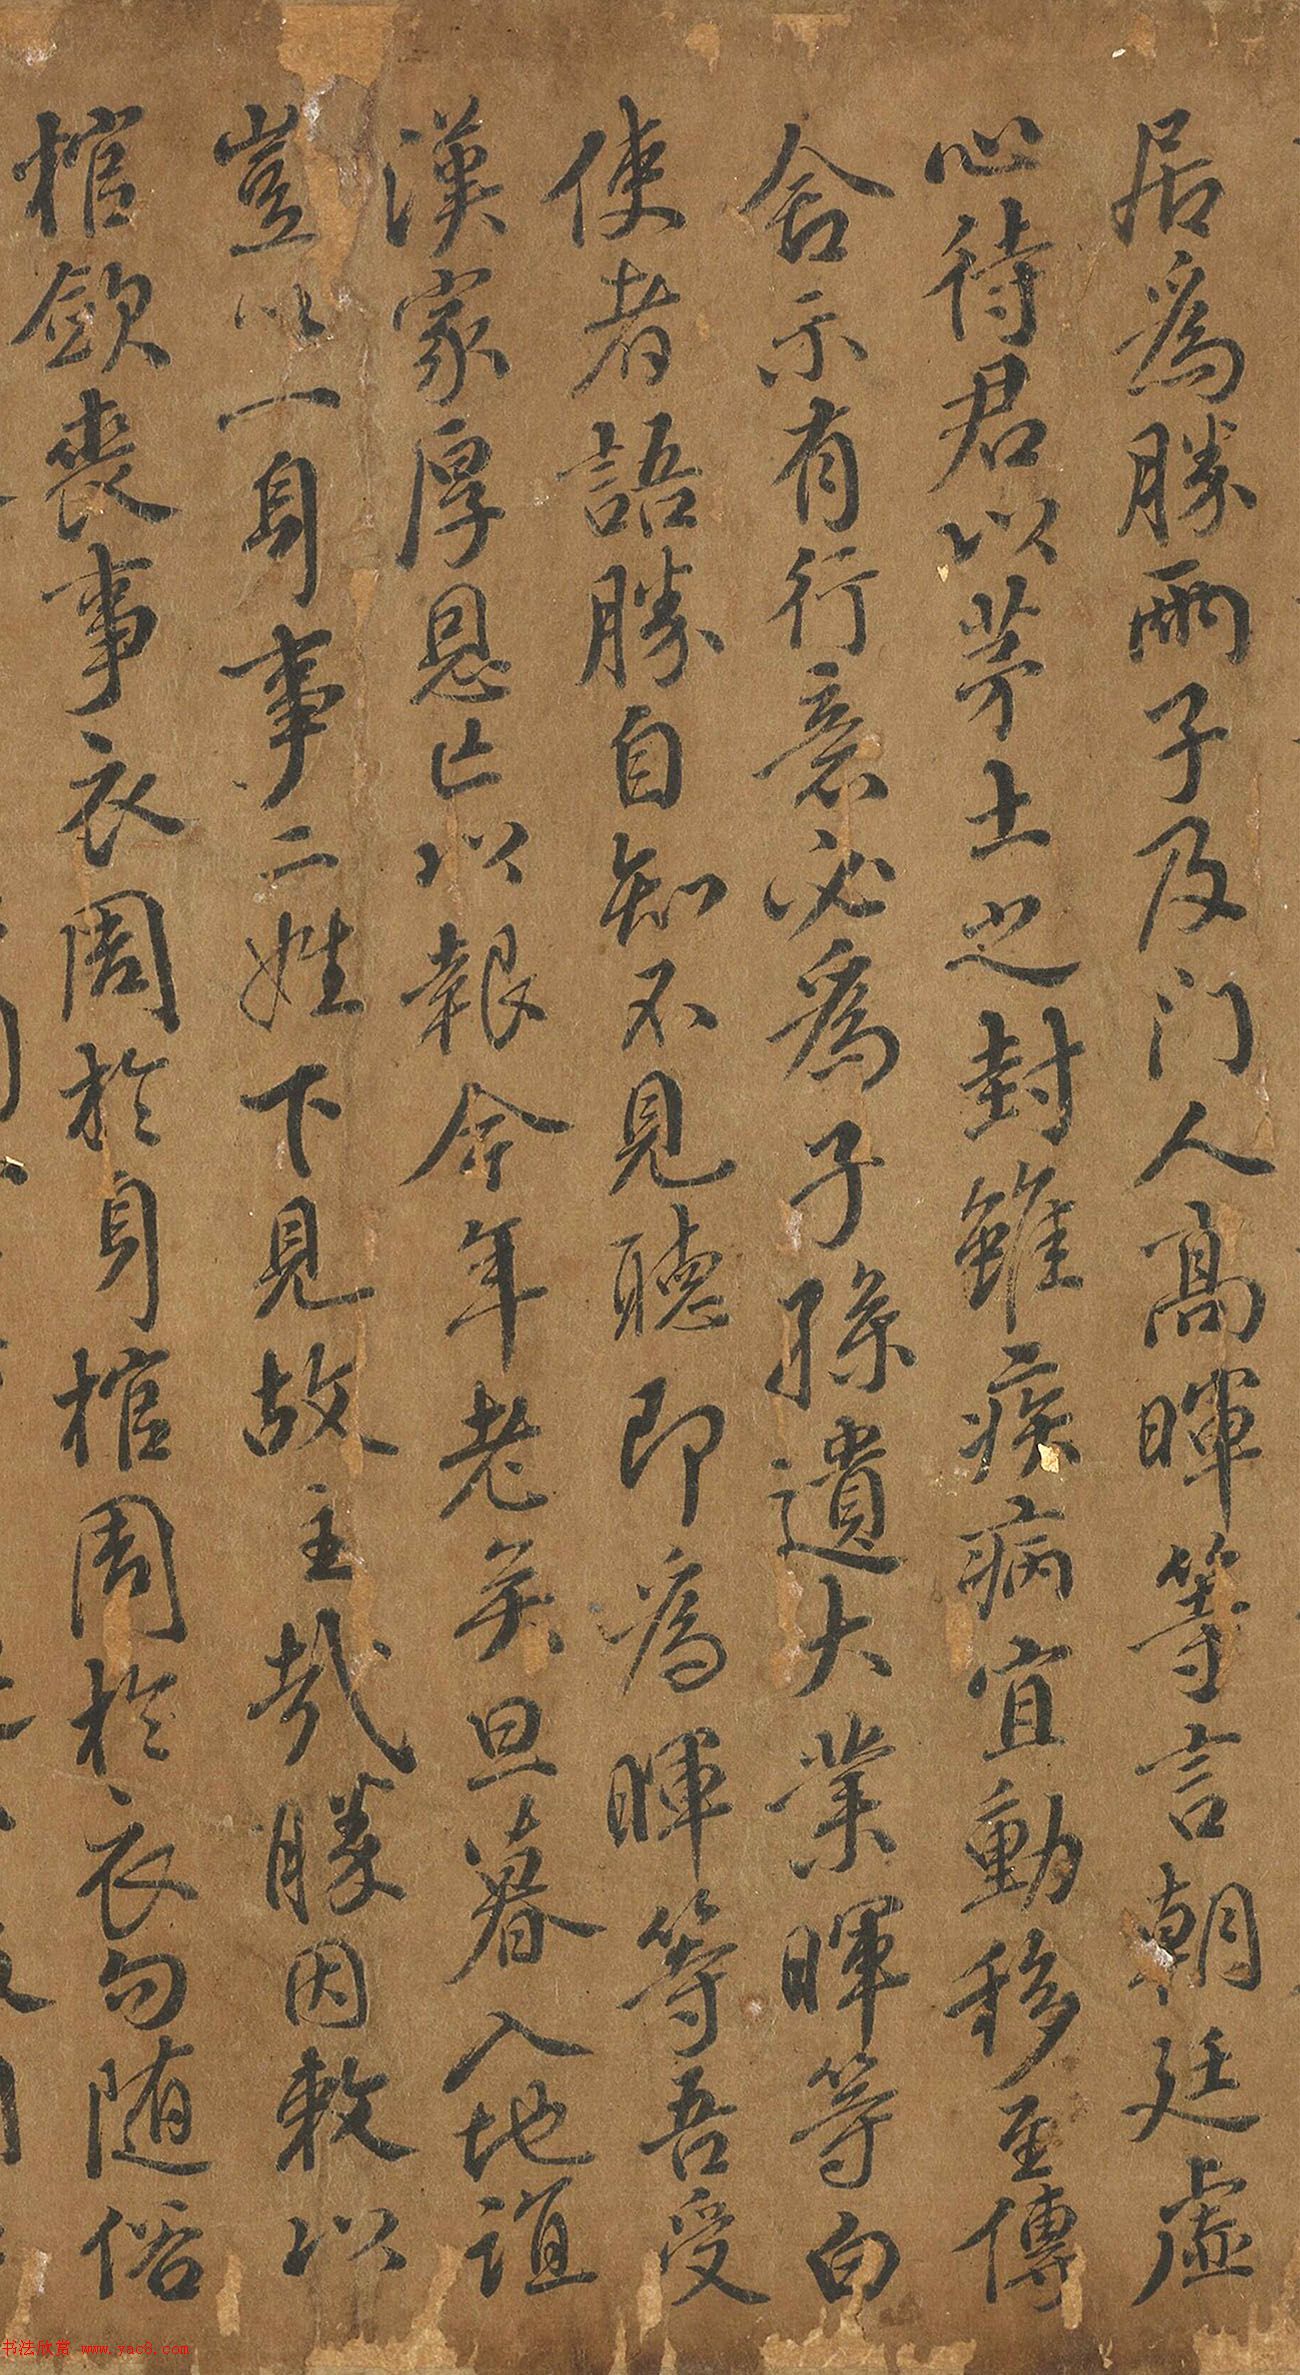 居爲勝兩子及门人髙暉等言朝廷虛
心待君以茅土之封雖疾病宜動移至傳
舍示有行意必爲子孫遺大業暉等白
使者語勝自知不見聽即爲暉等吾受
漢家厚恩亡以報今年老矣旦暮入地誼
豈以一身事二姓下見故主哉勝因敕以
棺斂喪事衣周於身棺周於衣勿随俗
书法欣赏 www.yac8.com